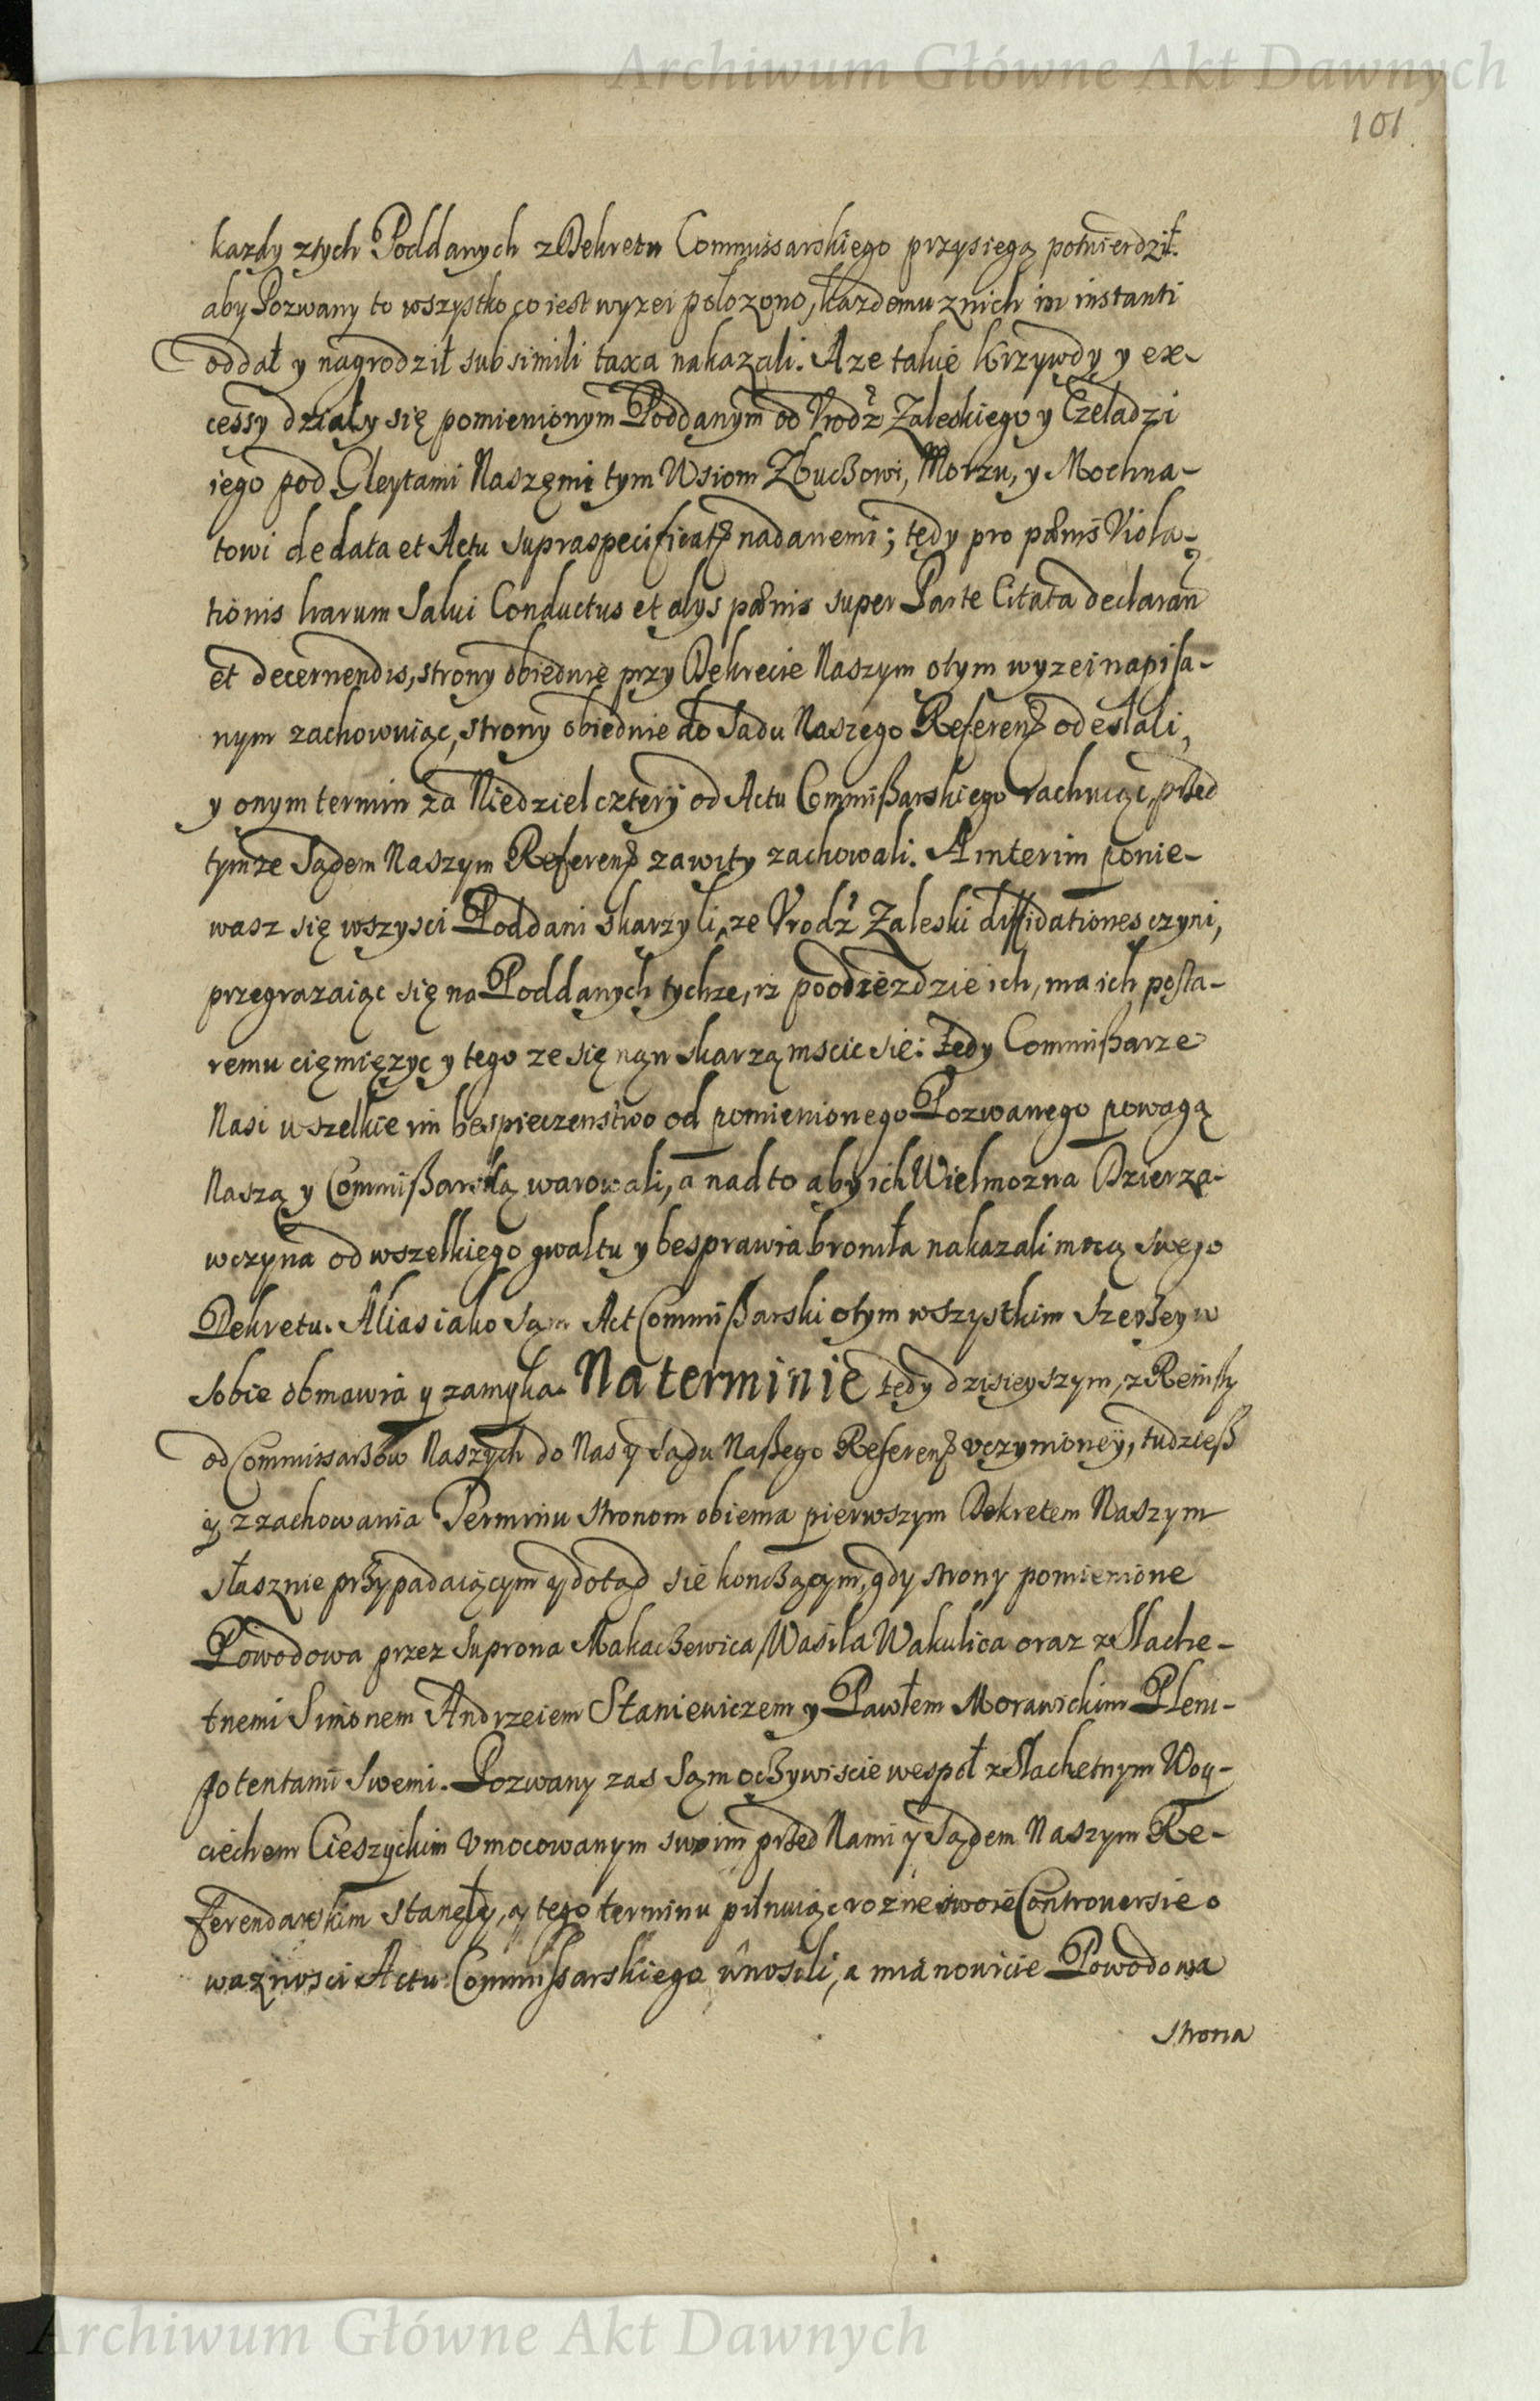 Archiwum Główne Akt Dawnych
101
kazdy ztych Poddanych z Dekretu Commissarskiego przysięgą potwierdził.
aby Pozwany to wszystko co iest wyzei połozono, kazdemu znich in instanti
oddał y nagrodził sub simili taxa nakazali. A ze takie krzywdy y ex-
cessy działy się pomienionym Poddanym od Vrodz Zaleskiego y Czeladzi
iego pod Gleytami Naszęmi tym Wsiom Zbuczowi, Morzu, y Mochna-
towi de data et Actu supraspecificat nadanemi; tędy pro pœnis Viola-
tionis harum Salui Conductus et alys pœnis super Parte Citata declaran
et decernendis, strony obiedwie przy Dekrecie Naszym otym wyzei napisa-
nym zachowuiąc, strony obiednie do Sadu Naszego Referen odesłali,
y onym termin za Niedziel cztery od Actu Commißarskiego rachuiąc, przed
tymze Sądem Naszym Referen zawity zachowali. A interim ponie-
wasz się wszysci Poddani skarzyli, ze Vrodz Zaleski diffidationes czyni,
przegrazaiąc się na Poddanych tychze, iz po odieździe ich, ma ich posta-
remu cięmięzyc y tego ze się nań skarzą mscic się: tedy Commißarze
Nasi wszelkie im bespieczenstwo od pomienionego Pozwanego powagą
Naszą y Commißarską warowali, a nad to aby ich Wielmozna Dzierza-
wczyna od wszelkiego gwałtu y besprawia broniła nakazali mocą swego
Dekretu. Alias iako sąm Act Commißarski otym wszystkim szerzey w
sobie obmawia y zamyka. Na terminie tędy dzisieyszym, z Remissy
od Commissarzow Naszych do Nas y Sądu Naßego Referen vczynioney, tudzieß
y z zachowania Terminu stronom obiema pierwszym Dekretem Naszym
słusznie przypadaiącym y dotąd się konczącym, gdy strony pomienione
Powodowa przez Suprona Makaczewica, Wasila Wakulica oraz z Slache-
tnemi Simonem Andrzeiem Staniewiczem y Pawłem Morawickim Pleni-
potentami Swemi. Pozwany zas Sąm oczywiscie wespoł z Slachetnym Woy-
ciechem Cieszyckim Vmocowanym swoim przed Nami y Sądem Naszym Re-
ferendarskim stanęły, y tego terminu pilnuiąc rozne swoie Controuersie o
waznosci Actu Commissarskiego wnosili, a mianowicie Powodowa
strona
Archiwum Główne Akt Dawnych